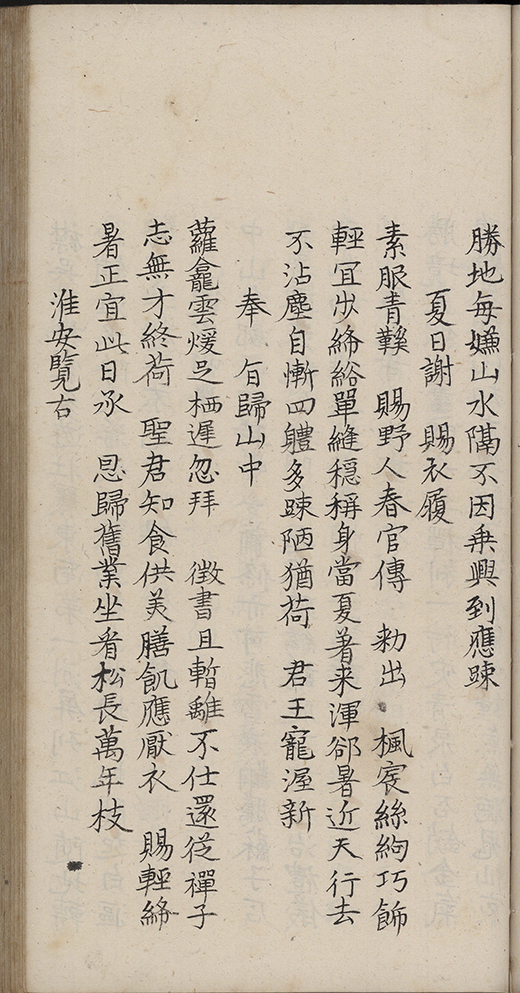 勝地每嫌山水隔不因乗興到應踈
夏日謝　賜衣履
素服青鞵　賜野人春官傳　勑出　楓宸絲絇巧飾
輕冝步絺綌單縫穩稱身當夏著来渾郤暑近天行去
不沾塵自慚四軆多踈陋猶荷　君王寵渥新
奉　㫖歸山中
蘿龕雲煖足栖遲忽拜　徴書且暫離不仕還從禪子
志無才終荷　聖君知食供美膳飢應厭衣　賜輕絺
暑正宜此日承　恩歸舊業坐看松長萬年枝
淮安覽古